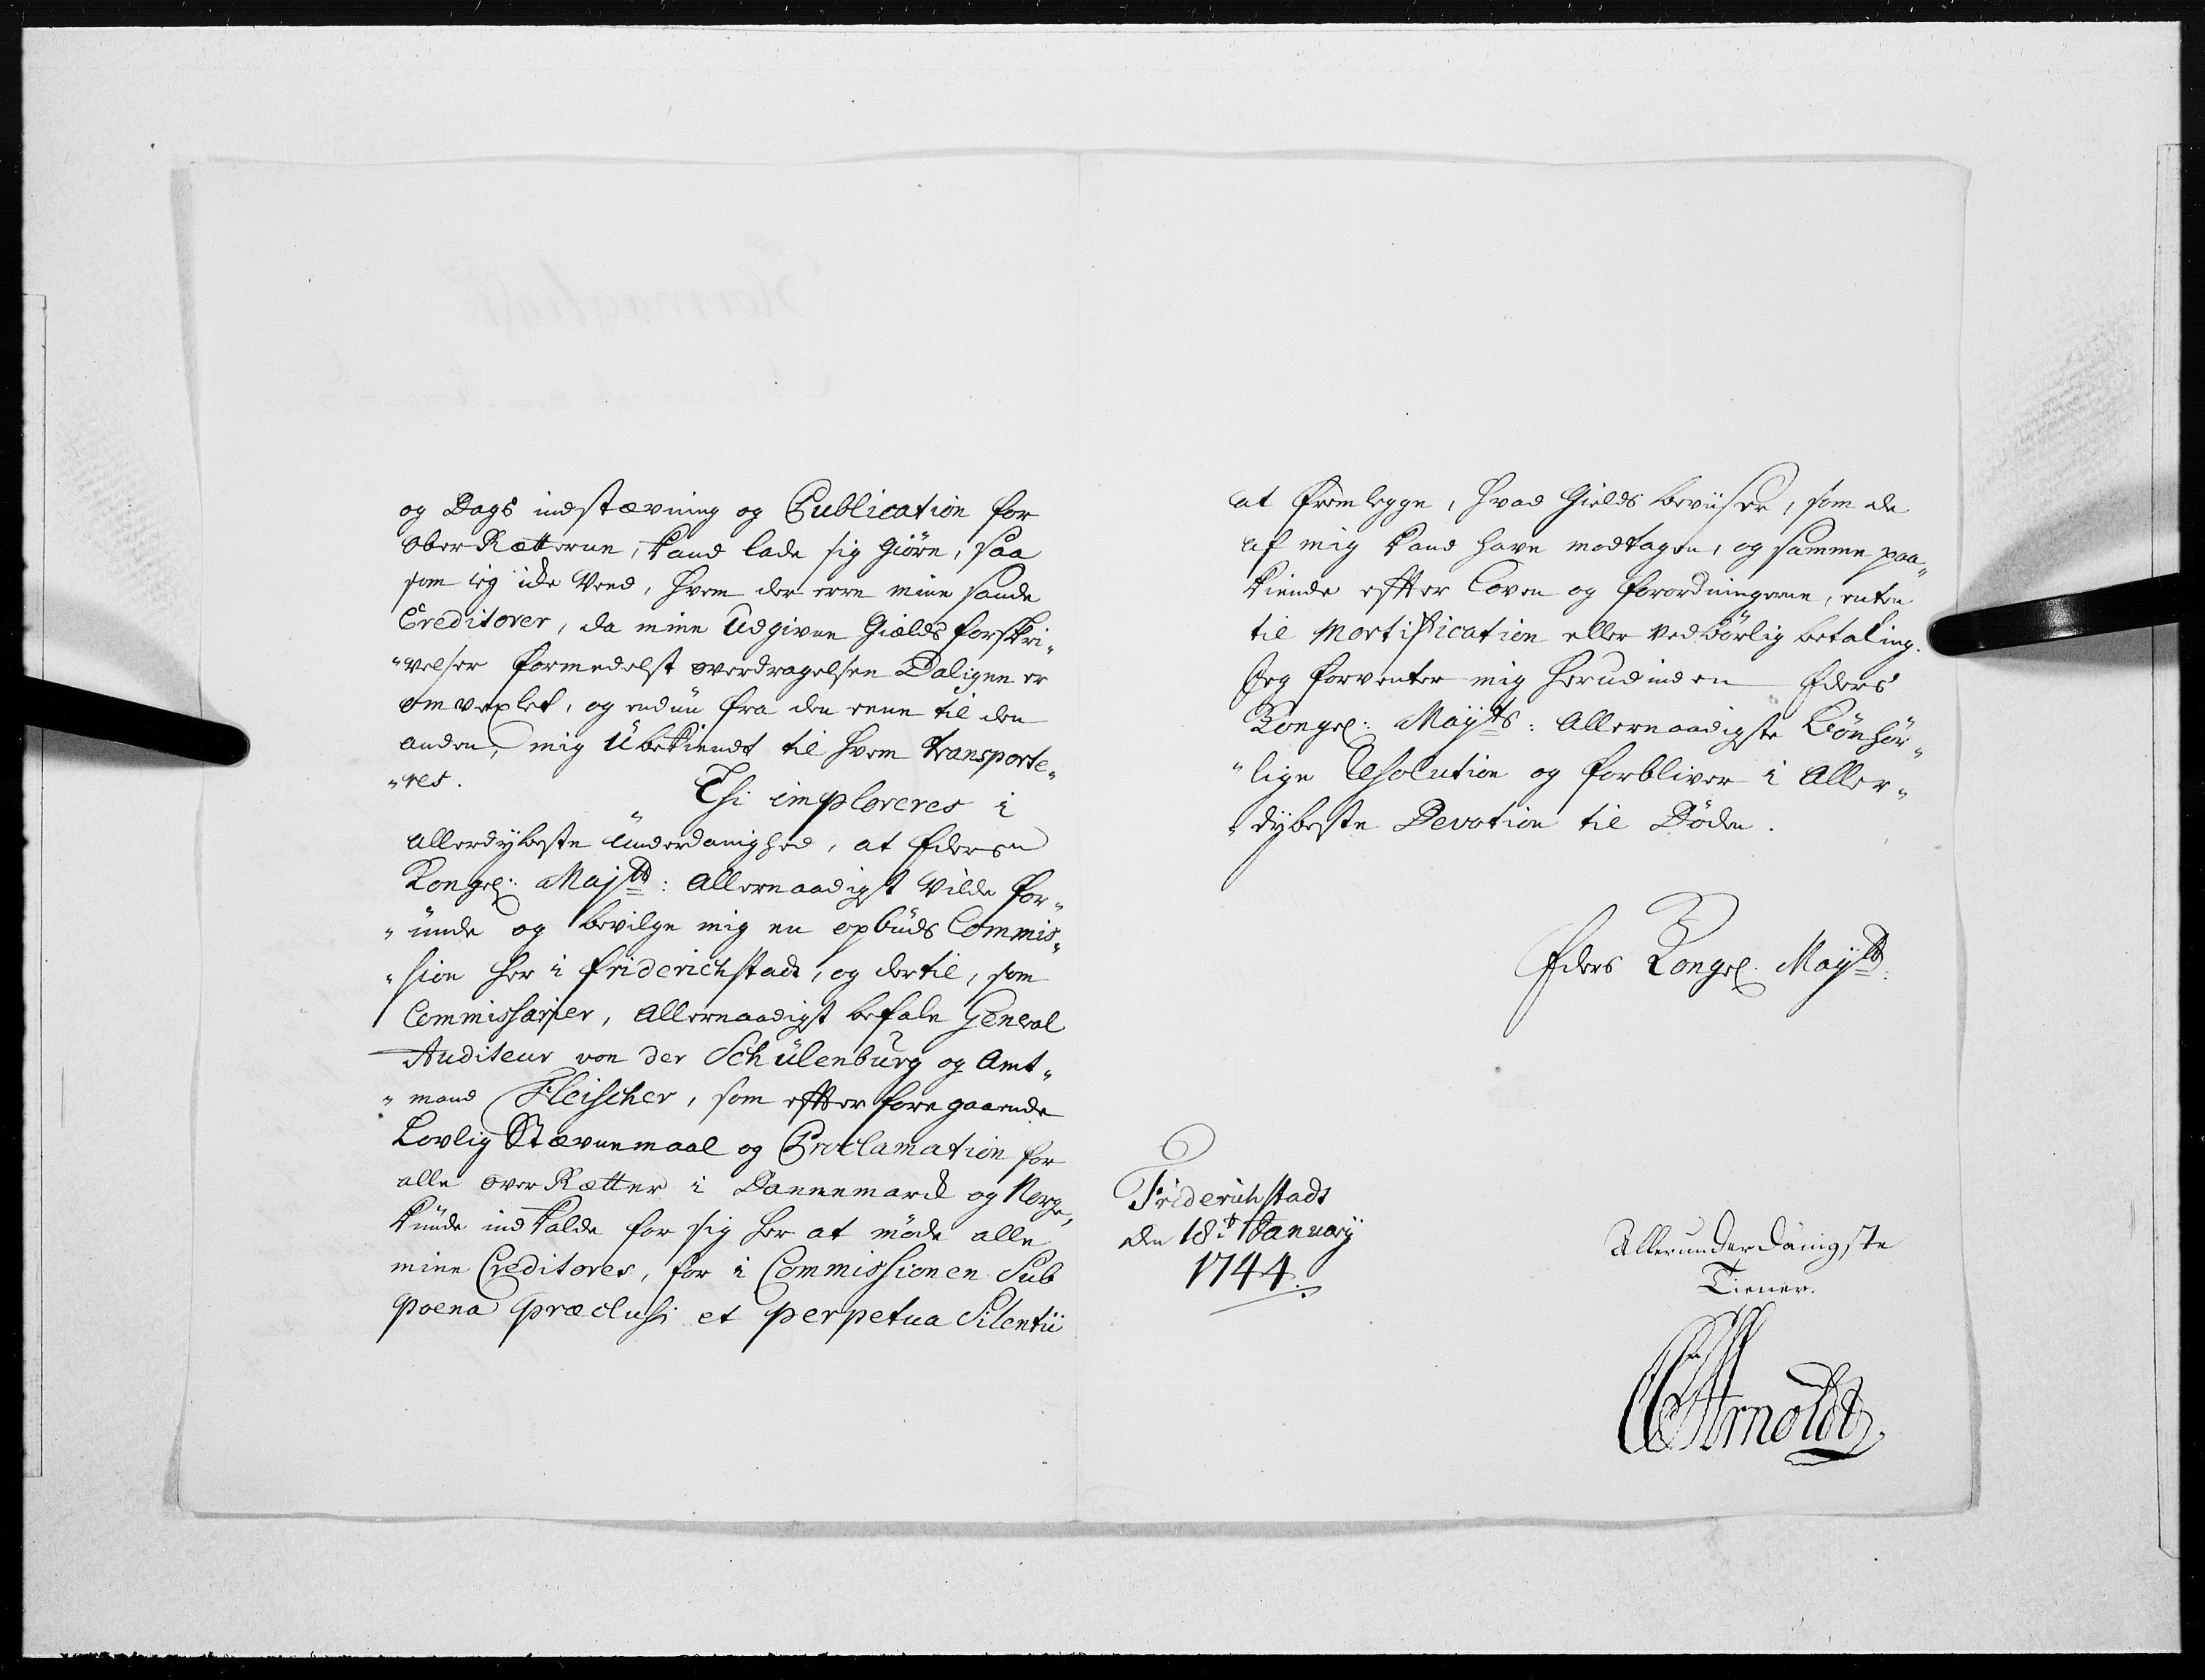 og Dags indstævning og Publication for
Ober Retterne, kand lade sig giøre, saa
som ieg icke veed, hvem der ere mine sande
Creditorer, da mine Udgivne Gields forskri„
„velser formedelst overdragelsen Daligen er
omvexlet, og endnü fra den eene til den
anden, mig übekiendt til hvem transporte„
„res.
Thi imploreres i
allerdybeste Underdanighed, at Eders
Kongel: Majts: Allernaadigst vilde for„
„ünde og bevilge mig en opbuds Commis„
„sion her i Friderichstadt, og dertil, som
Commissarier, Allernaadigst befale General
Auditeur von der Schülenburg og Amt„
„mand Fleischer, som efter foregaaende
Lovlig Stævnemaal og Proclamation for
alle over Retter i Dannemarck og Norge,
kunde indkalde for sig her at møde alle
mine Creditores, for i Commissionen Sub
poena præclusi et perpetua Silentii
at fremlegge, hvad Gields beviiser, som de
af mig kand have modtagen, og samme paa„
kiende efter Loven og forordningerne, enten
til Mortification eller vedbørlig betaling.
Jeg forventer mig herudinden Eders
Kongel: Mayts: Allernaadigste Bønhør„
„lige Resolution og forbliver i Aller„
„dybeste Devotion til Døden.
Eders Kongel. Mayts.
Friderichstadt
den 18de January
1744.
Allerunderdanigste
Tiener.
Arnoldt